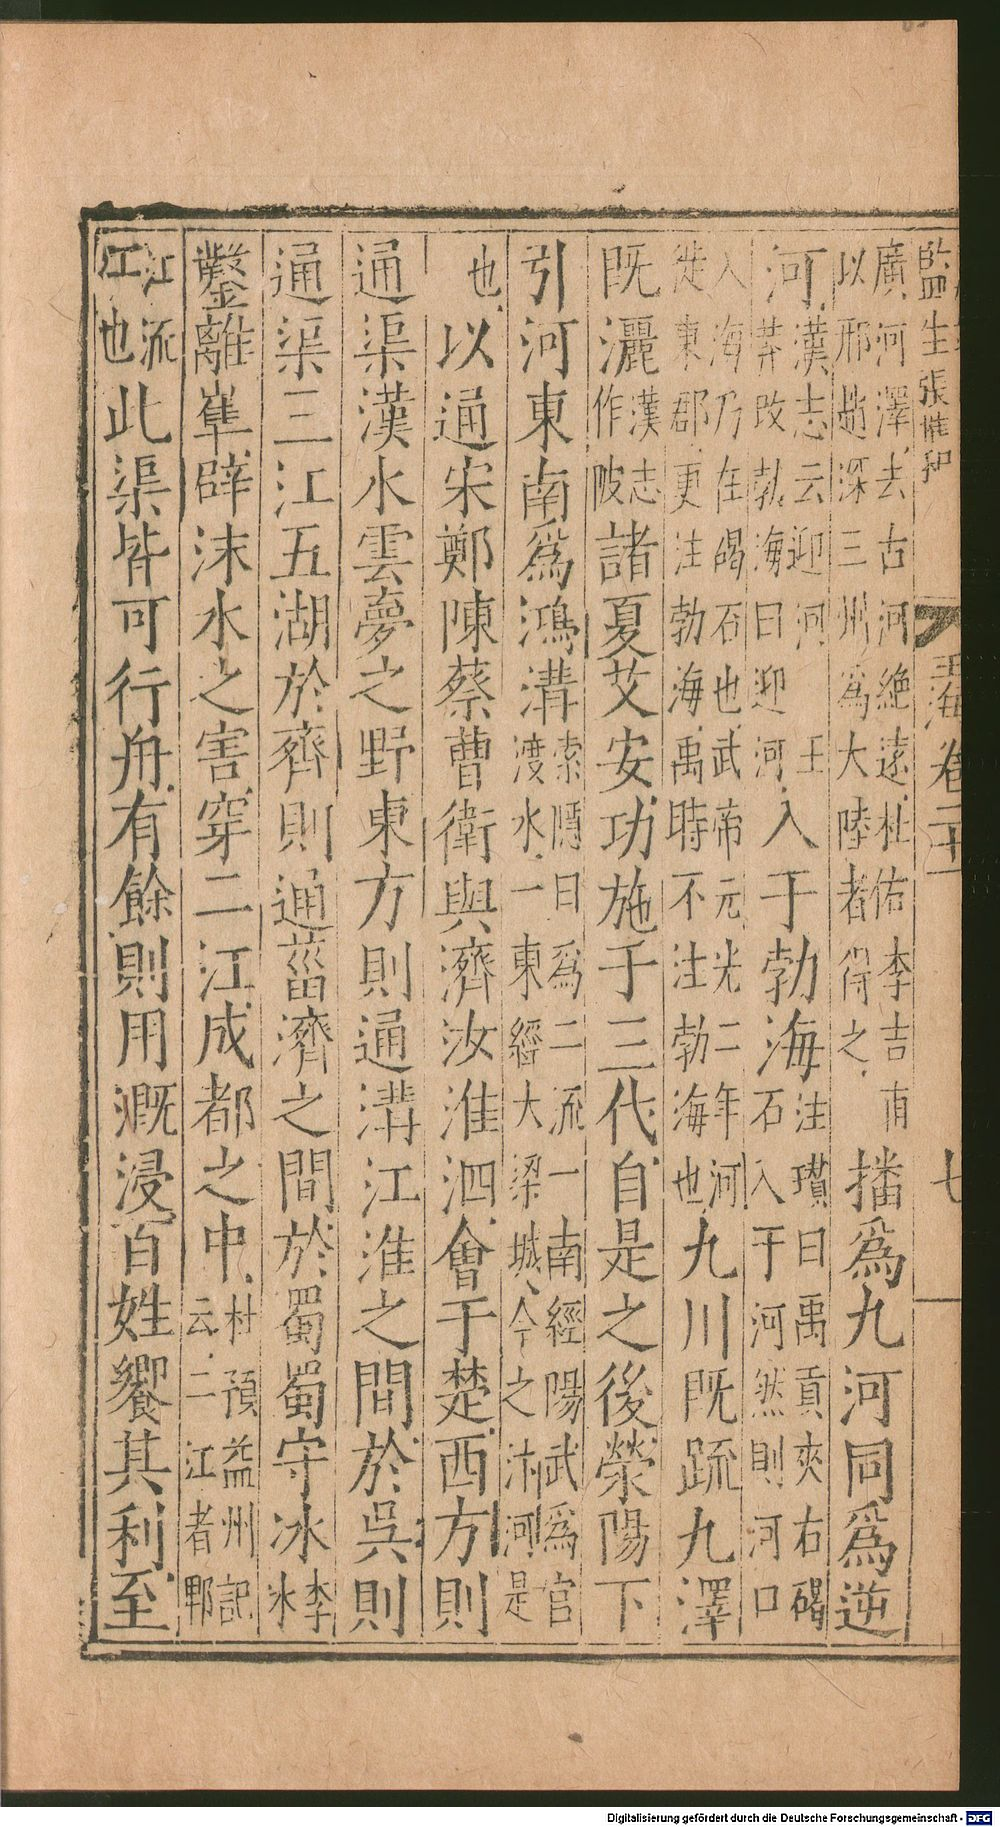 監生張惟和 玉海卷二十一 七
廣河澤去古河絶遠杜佑李吉甫
以邢趙深三州爲大陸者得之播爲九河同爲逆
河漢志云迎河王
莽改勃海曰迎河入于勃海注瓚曰禹貢夾右碣
石入于河然則河口
入海乃在碣石也武帝元光二年河
徙東郡更注勃海禹時不注勃海也九川既䟽九澤
既灑漢志作陂諸夏艾安功施于三代自是之後滎陽下
引河東南爲鴻溝索隱曰爲二流一南經陽武爲官
渡水一東經大梁城今之汴河是
也以通宋鄭陳蔡曹衛與濟汝淮泗會于楚西方則
通渠漢水雲夢之野東方則通溝江淮之間於吳則
通渠三江五湖於齊則通菑濟之間於蜀蜀守冰李冰
鑿離辟沫水之害穿二江成都之中杜預益州記
云二江者郫
江流江也此渠皆可行舟有餘則用溉浸百姓饗其利至
Digitalisierung gefördert durch die Deutsche Forschungsgemeinschaft - DFG